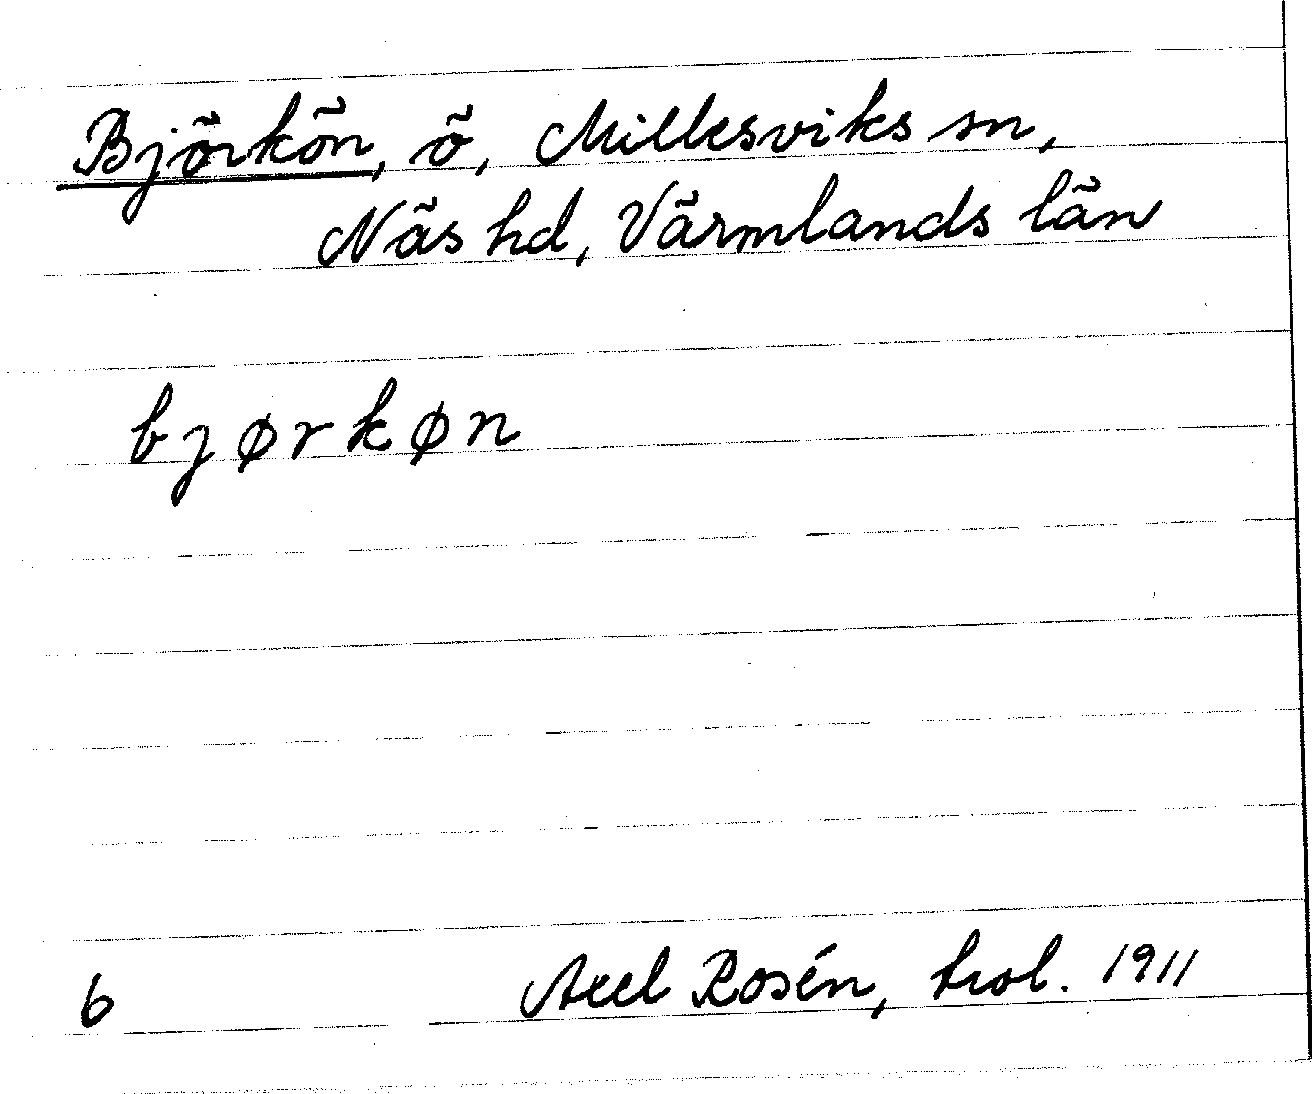 Björkön, ö, Millesviks sn,
Näs hd, Värmlands län
bjørkøn
6 Axel Rosén, trol. 1911